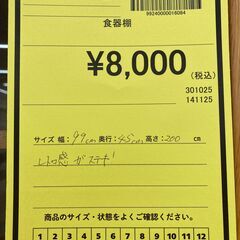 99240000016084
食器棚
¥8,000
(税込)
301025
141125
サイズ 幅:99cm 奥行:45cm 高さ:200 cm
レトロ感がステキ
商品のサイズ・状態をよくご確認ください。
1 2 3 4 5 6 7 8 9 10 11 12